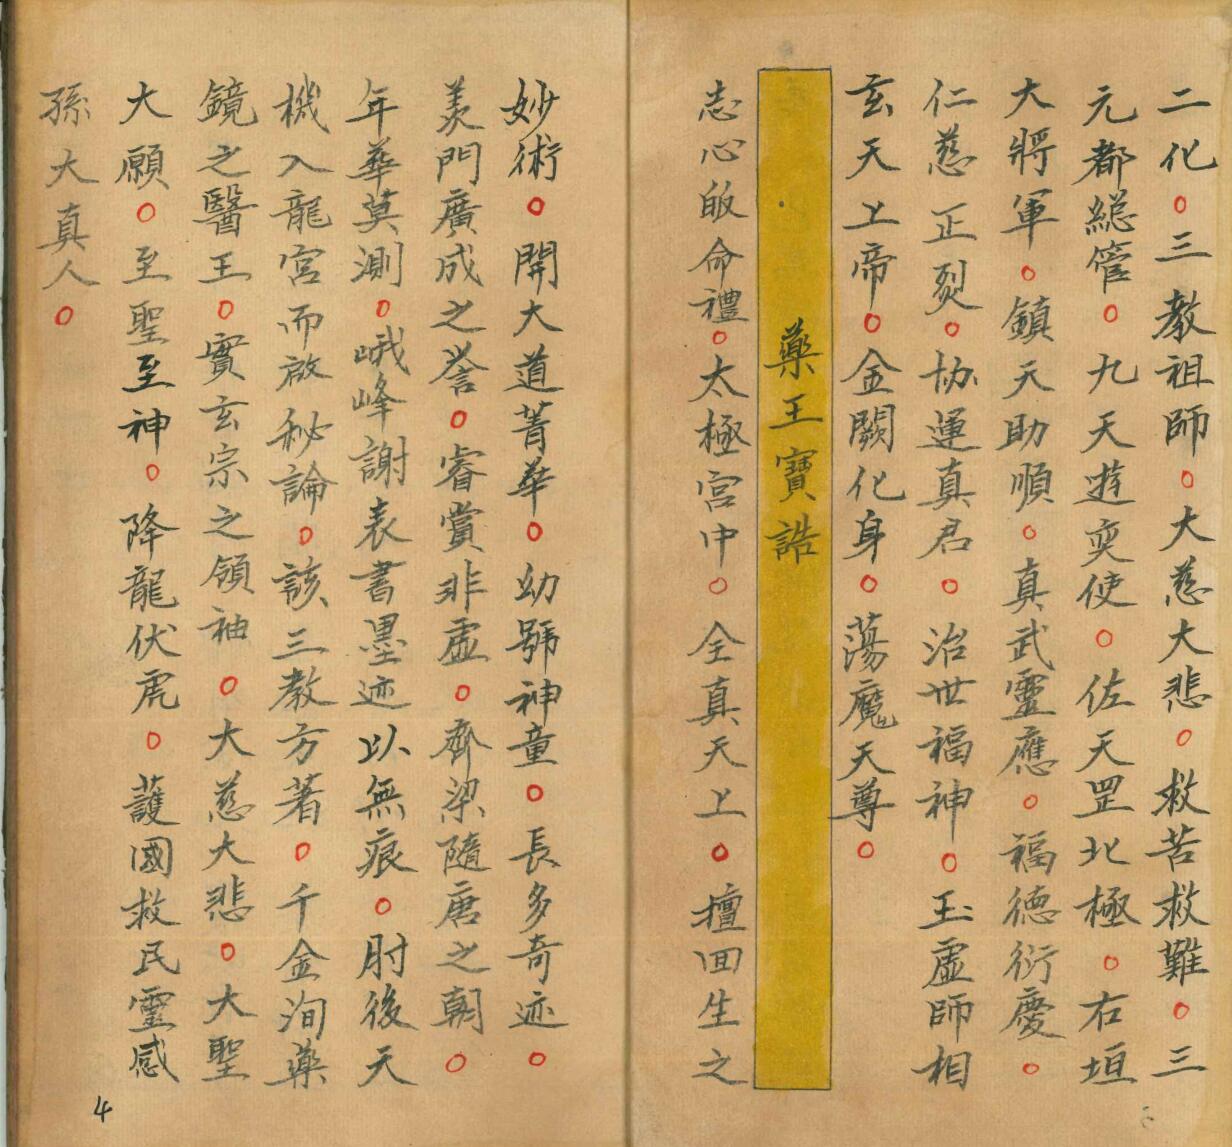 二化○三教祖師○大慈大悲○救苦救難○三
元都總管○九天遊奕使○佐天罡北極○右垣
大將軍○鎮天助順○真武靈應○福德衍慶○
仁慈正烈○協運真君○治世福神○玉虛師相
玄天上帝○金闕化身○蕩魔天尊○
藥王寶誥
志心皈命禮○太極宮中○全真天上○擅回生之
妙術○開大道菁華○幼號神童○長多奇迹○
羨門廣成之誉○睿賞非虛○齊梁隨唐之朝○
年華莫測○峨峰謝表書墨迹以無痕○肘後天
機入龍宮而啟秘論○該三教方著○千金洵藥
鏡之醫王○實玄宗之領袖○大慈大悲○大聖
大願○至聖至神○降龍伏虎○護國救民靈感
孫大真人○
4